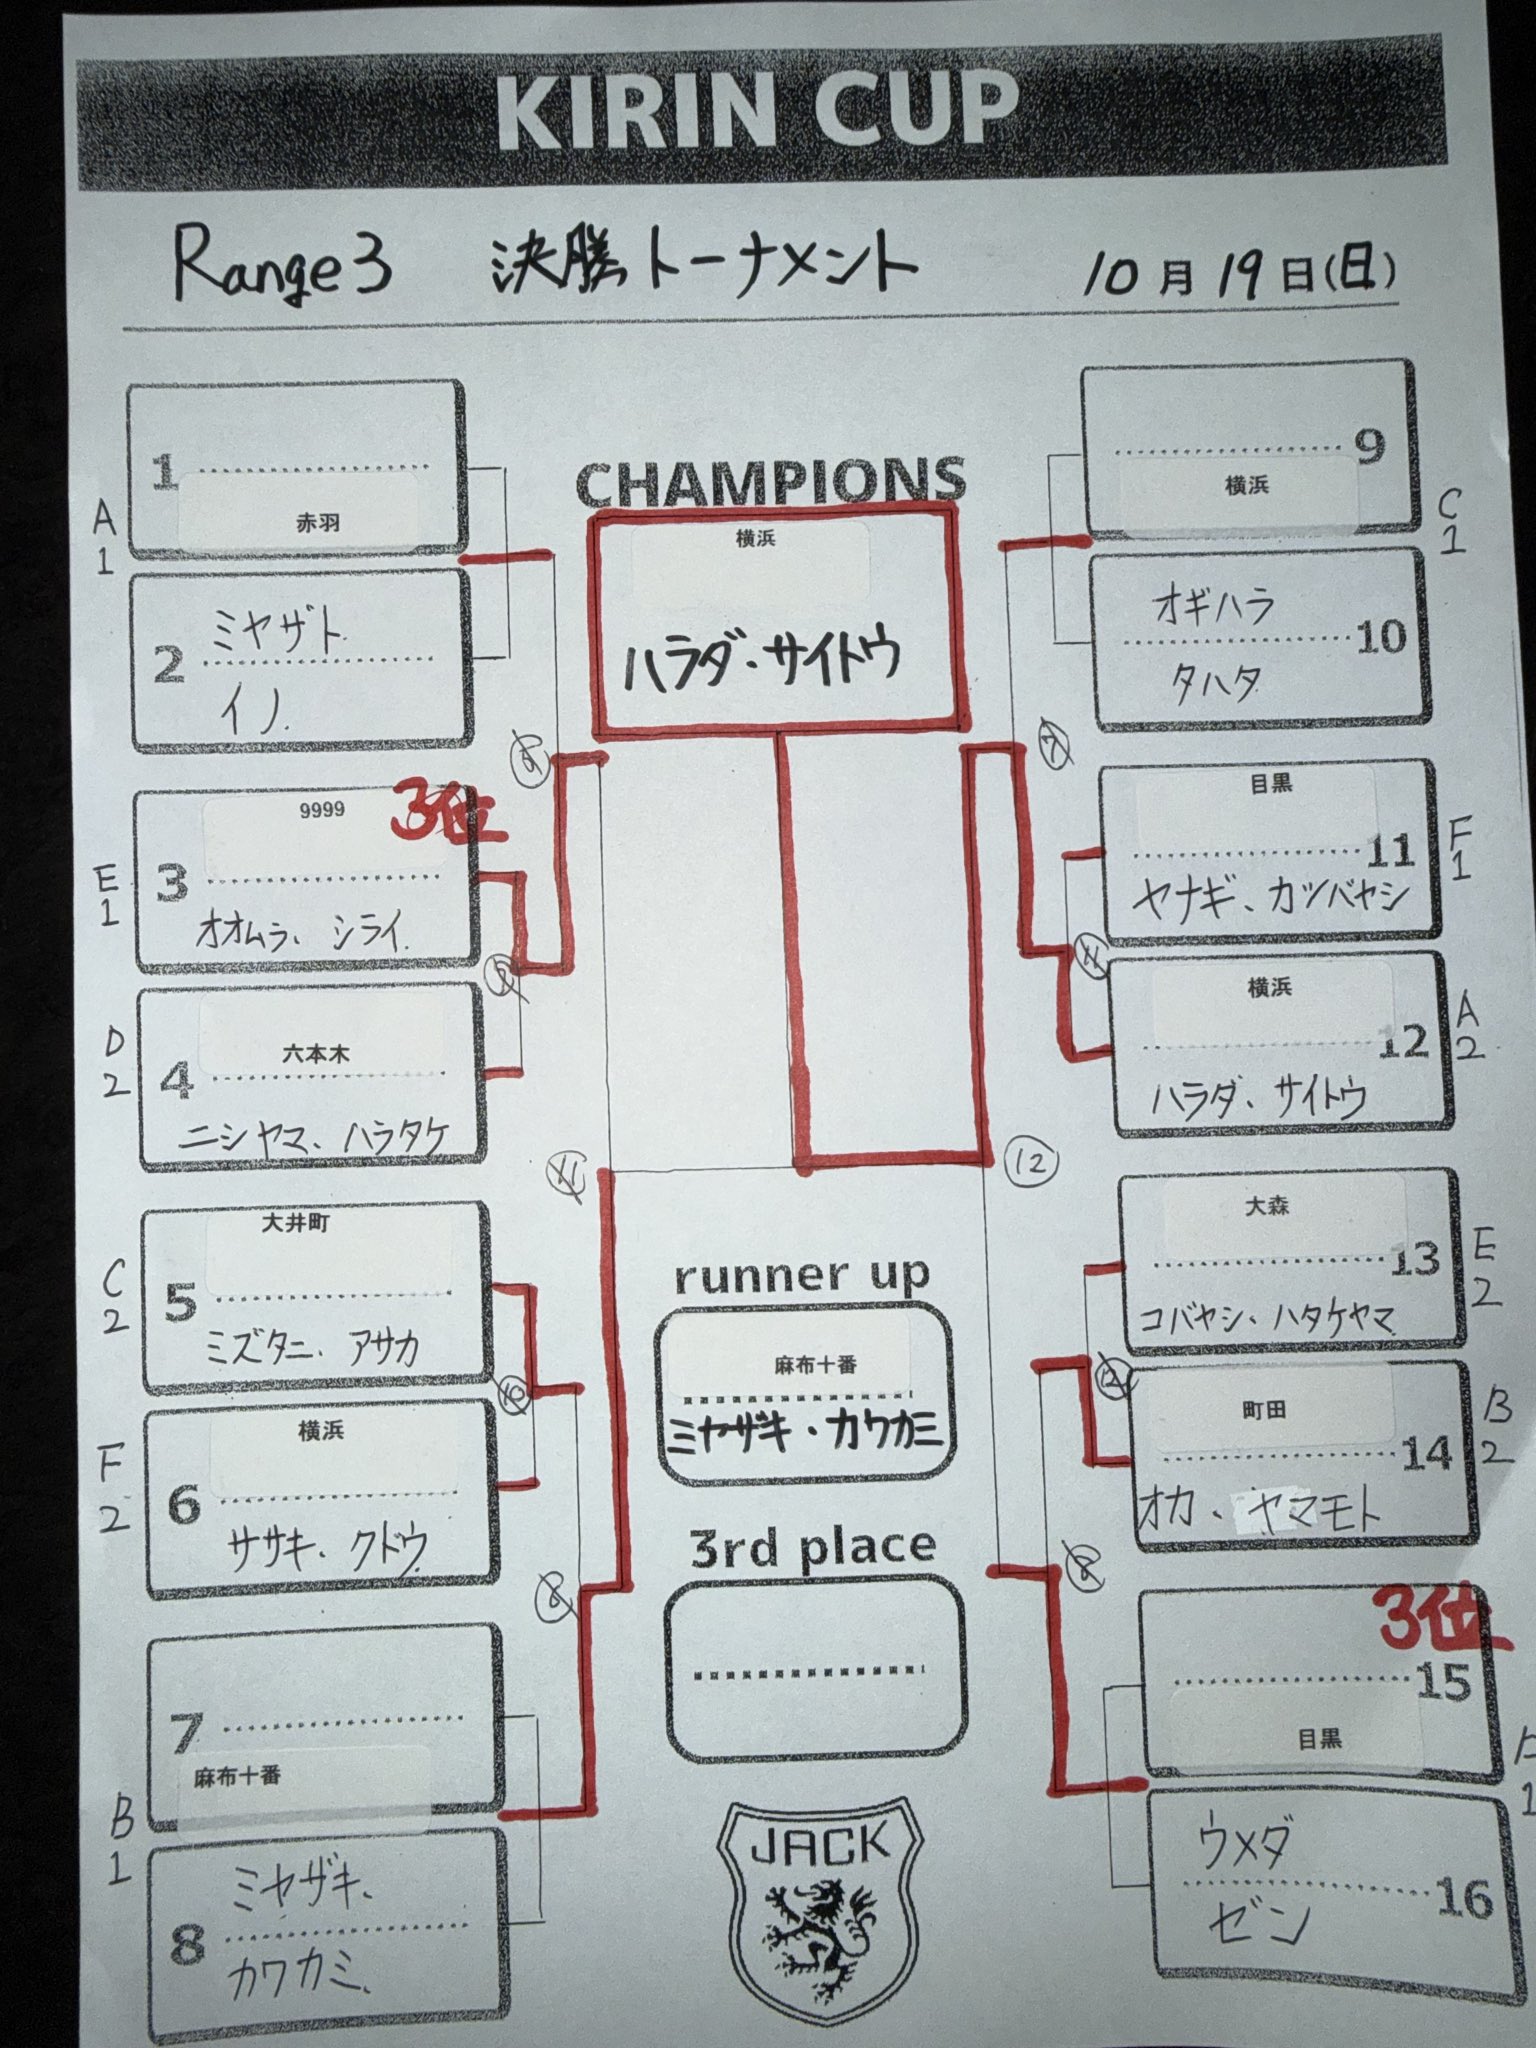 KIRIN CUP
Range3 決勝トーナメント 10月19日(日)
1
赤羽
A
1
2
ミヤザト
イノ
9999
3位
3
オオムラ、シライ
E
1
六本木
4
ニシヤマ、ハラタケ
D
2
大井町
5
ミズタニ、アサカ
C
2
横浜
6
ササキ、クドウ
F
2
7
麻布十番
B
1
8
ミヤザキ、
カワカミ
CHAMPIONS
横浜
ハラダ、サイトウ
⑫
runner up
麻布十番
ミヤザキ・カワカミ
3rd place
JACK
9
横浜
C
1
オギハラ
10
タハタ
目黒
11
ヤナギ、カツバヤシ
F
1
横浜
12
ハラダ、サイトウ
A
2
大森
13
コバヤシ・ハタケヤマ
E
2
町田
14
オカ、ヤマモト
B
2
3位
15
目黒
1
ウメダ
16
ゼン